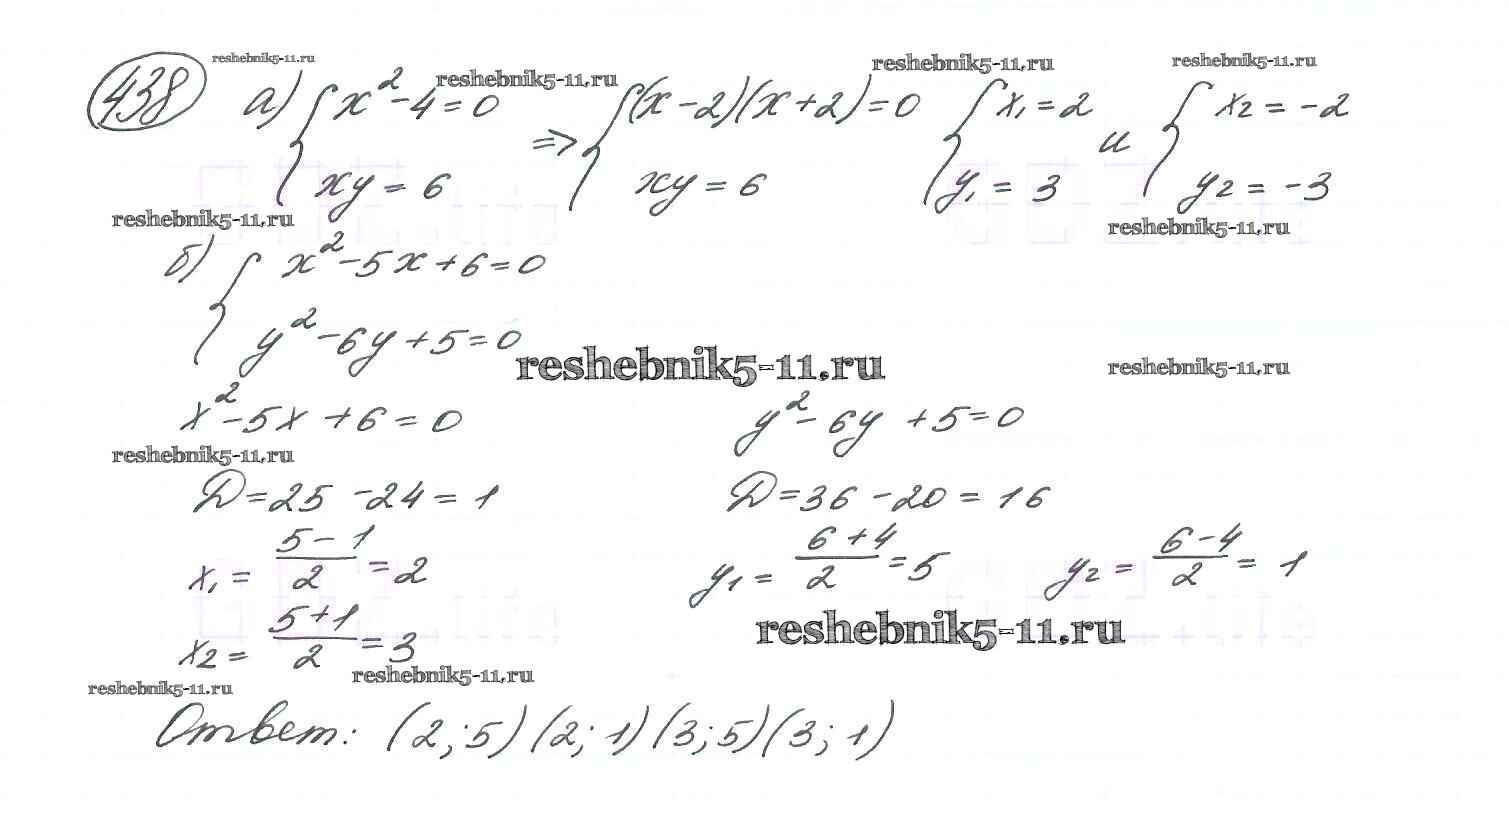 reshebnik5-11.ru
438 а) { x² - 4 = 0 ⇒ { (x - 2)(x + 2) = 0 { x₁ = 2 и { x₂ = -2
reshebnik5-11.ru reshebnik5-11.ru reshebnik5-11.ru
xy = 6 xy = 6 y₁ = 3 y₂ = -3
reshebnik5-11.ru reshebnik5-11.ru
б) { x² - 5x + 6 = 0
y² - 6y + 5 = 0
reshebnik5-11.ru reshebnik5-11.ru
x² - 5x + 6 = 0 y² - 6y + 5 = 0
reshebnik5-11.ru
D = 25 - 24 = 1 D = 36 - 20 = 16
x₁ = (5 - 1)/2 = 2 y₁ = (6 + 4)/2 = 5 y₂ = (6 - 4)/2 = 1
reshebnik5-11.ru
x₂ = (5 + 1)/2 = 3
reshebnik5-11.ru reshebnik5-11.ru
Ответ: (2; 5) (2; 1) (3; 5) (3; 1)